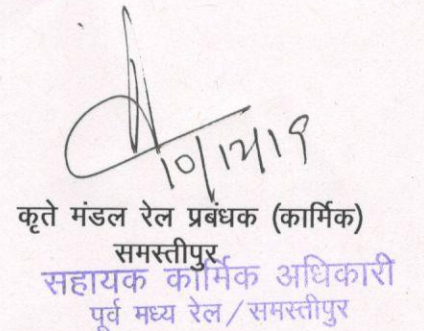 10/12/19
कृते मंडल रेल प्रबंधक (कार्मिक)
समस्तीपुर
सहायक कार्मिक अधिकारी
पूर्व मध्य रेल/समस्तीपुर